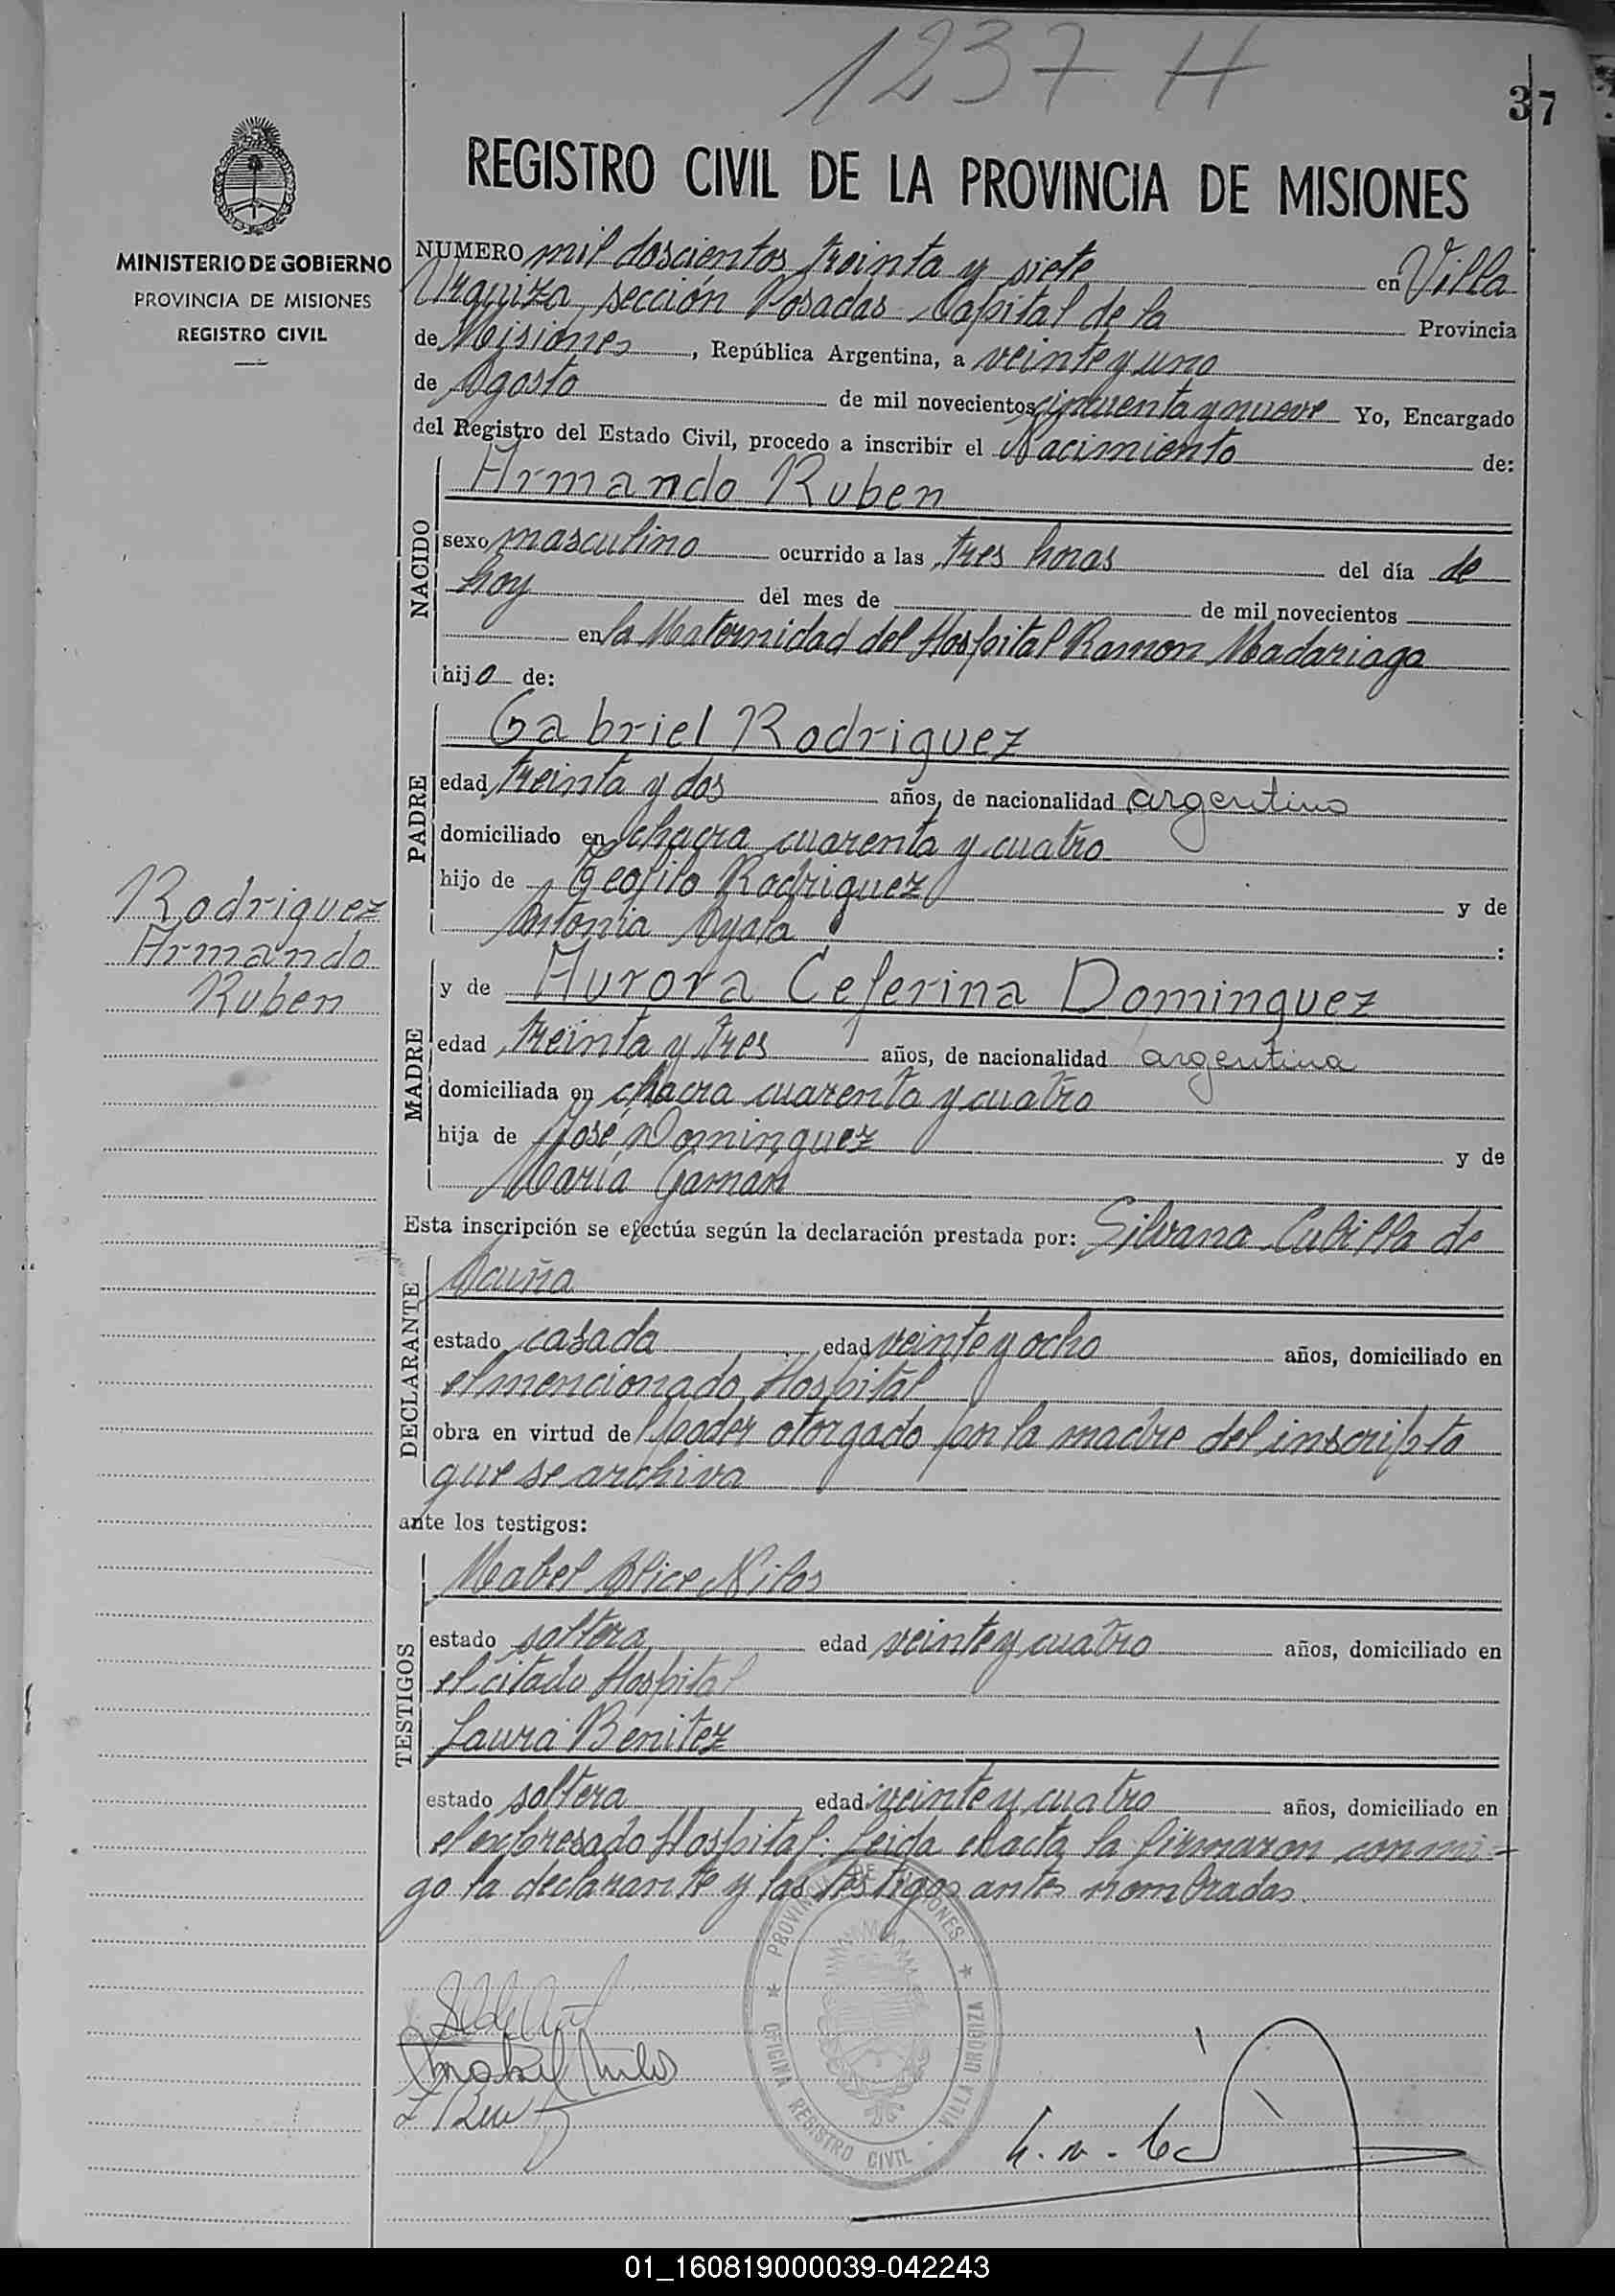 1237 H
37
REGISTRO CIVIL DE LA PROVINCIA DE MISIONES
MINISTERIO DE GOBIERNO
PROVINCIA DE MISIONES
REGISTRO CIVIL
NUMERO mil doscientos treinta y siete en Villa
Urquiza, sección Posadas Capital de la Provincia
de Misiones, República Argentina, a veinte y uno
de Agosto de mil novecientos cincuenta y nueve Yo, Encargado
del Registro del Estado Civil, procedo a inscribir el Nacimiento de:
NACIDO
Armando Ruben
sexo masculino ocurrido a las tres horas del día de
hoy del mes de de mil novecientos
en la Maternidad del Hospital Ramon Madariaga
hijo de:
PADRE
Gabriel Rodriguez
edad treinta y dos años, de nacionalidad argentino
domiciliado en chacra cuarenta y cuatro
hijo de Teofilo Rodriguez y de
Antonia Ayala :
Rodriguez
Armando
Ruben
MADRE
y de Aurora Ceferina Dominguez
edad treinta y tres años, de nacionalidad argentina
domiciliada en chacra cuarenta y cuatro
hija de José Dominguez y de
María
Esta inscripción se efectúa según la declaración prestada por: Silvana Cubilla de
DECLARANTE
Acuña
estado casada edad veinte y ocho años, domiciliado en
el mencionado Hospital
obra en virtud del poder otorgado por la madre del inscripto
que se archiva
ante los testigos:
TESTIGOS
Mabel Alice Nilos
estado soltera edad veinte y cuatro años, domiciliado en
el citado Hospital
Laura Benitez
estado soltera edad veinte y cuatro años, domiciliado en
el expresado Hospital: Leida el acta, la firmaron conmi-
go la declarante y las testigos antes nombradas.
PROVINCIA DE MISIONES
OFICINA REGISTRO CIVIL - VILLA URQUIZA
01_160819000039-042243